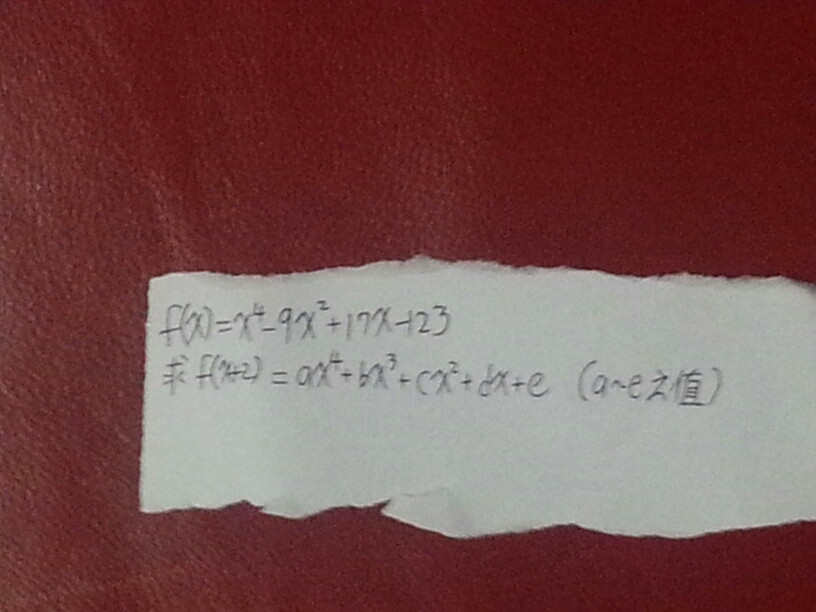 f(x)=x⁴-9x²+17x-123
求 f(x+2) = ax⁴+bx³+cx²+dx+e (a~e之值)